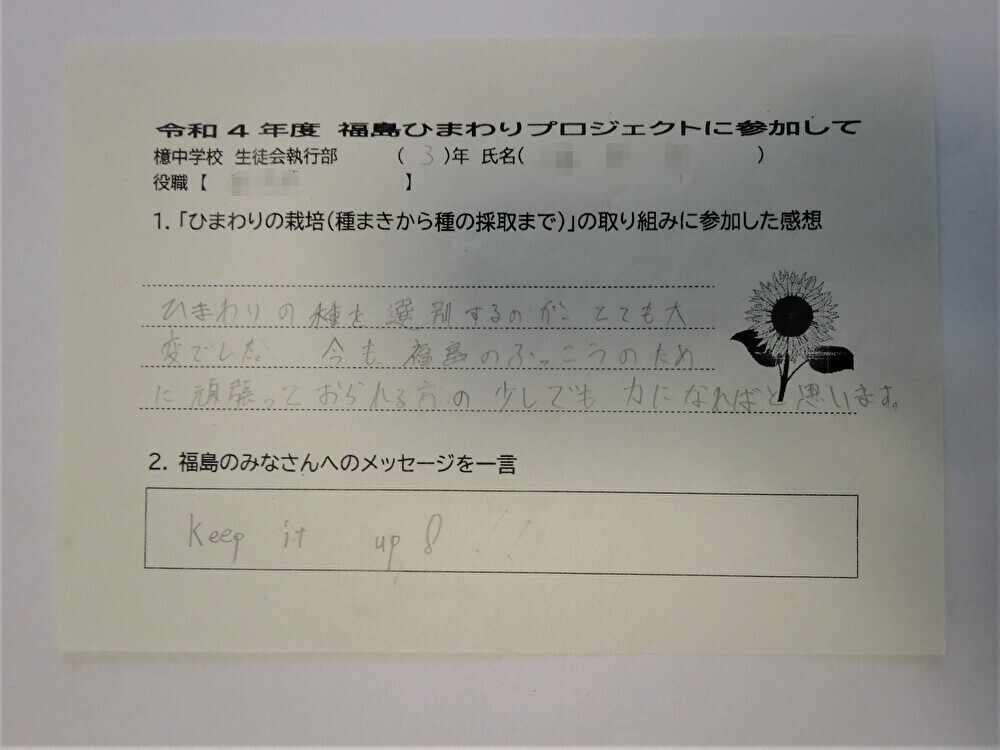 令和４年度 福島ひまわりプロジェクトに参加して
檍中学校 生徒会執行部 （ 3 ）年 氏名（ ）
役職【 】
1.「ひまわりの栽培（種まきから種の採取まで）」の取り組みに参加した感想
ひまわりの種を選別するのがとても大
変でした。 今も福島のふっこうのため
に頑張っておられる方の少しでも力になればと思います。
2. 福島のみなさんへのメッセージを一言
Keep it up !!